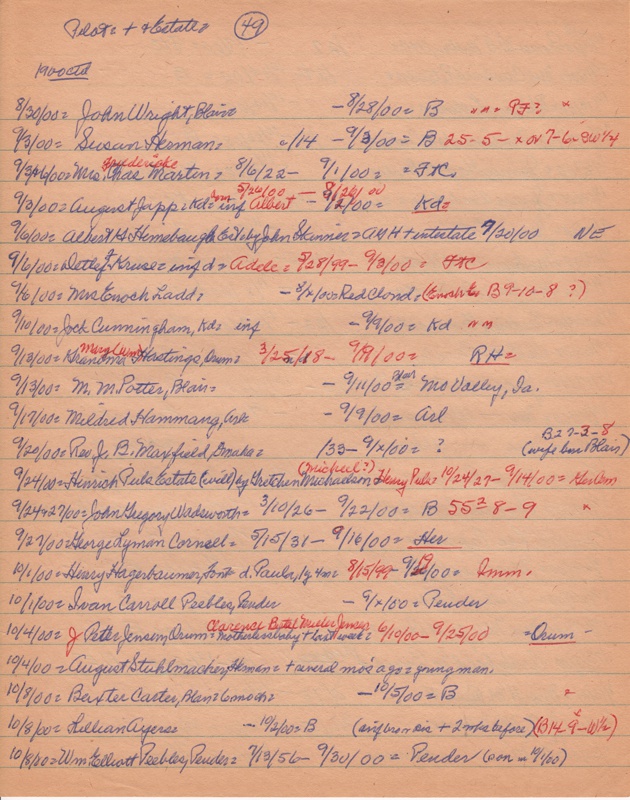 49
1900ctd
8/30/00= John Wright, Blair= - 8/28/00= B " " = PF? x
9/3/00= Susan Herman= c/14 - 9/3/00= B 25-5-x or 7-6
9/3+6/00= Mrs. Chas Fredericke Martin= 8/6/22 - 9/1/00= =FC.
9/3/00= August Japp, Kd= inf Albert 5/26/00 - 8/26/00 - 9/2/00= Kd=
9/6/00= Albert H. Himebaugh Est. by John Skinner= AMH + intestate 9/20/00 NE
9/6/00= Detlef Kruse= inf d= Adele= 5/28/99 - 9/3/00= FC
9/6/00= Mrs Enoch Ladd= - 8/x/00= Red Cloud= (Enoch is B 9-10-8 ?)
9/10/00= Jack Cunningham, Kd= inf - 9/9/00= Kd " "
9/13/00= Grandma Mary Hastings, Orum= 3/25/18 - 9/9/00= RH=
9/13/00= M. M. Potter, Blair= - 9/11/00= Mo Valley, Ia.
9/17/00= Mildred Hammang, Arl= - 9/9/00= Arl
9/20/00= Rev Jr. B. Mayfield, Omaha= /33 - 9/x/00= ? B27-3-8 (wife bur Blair)
9/24/00= Hinrich Puls Estate (will) by Gretchen Michaelson (Michael?) Henry Puls= 10/24/27 - 9/14/00=
9/24+27/00= John Gregory Wadsworth= 3/10/26 - 9/22/00= B 55² 8-9 x
9/27/00= George Lyman Cornell= 5/15/31 - 9/16/00= Her
10/1/00= Henry Hagerbaumer, Font= d. Paula, 1y 4m= 8/15/99 - 9/19/00= Imm.
10/1/00= Ivan Carroll Peebles, Pender - 9/x/00= Pender
10/4/00= J Peter Jensen, Orum= Clarence Mueller Jensen motherless baby + last week= 6/10/00 - 9/25/00 =Orum -
10/4/00= August Stuhlmacher, Herman= + several mo's ago= young man.
10/8/00= Baxter Carter, Blair= 6 moch= - 10/5/00= B
10/8/00= Lillian Ayers= - 10/2/00= B (inf bro or sis + 2 wks before) (B14 9-W½)
10/8/00= Wm Elliott Peebles, Pender= 7/13/56 - 9/30/00= Pender (son = 9/1/00)